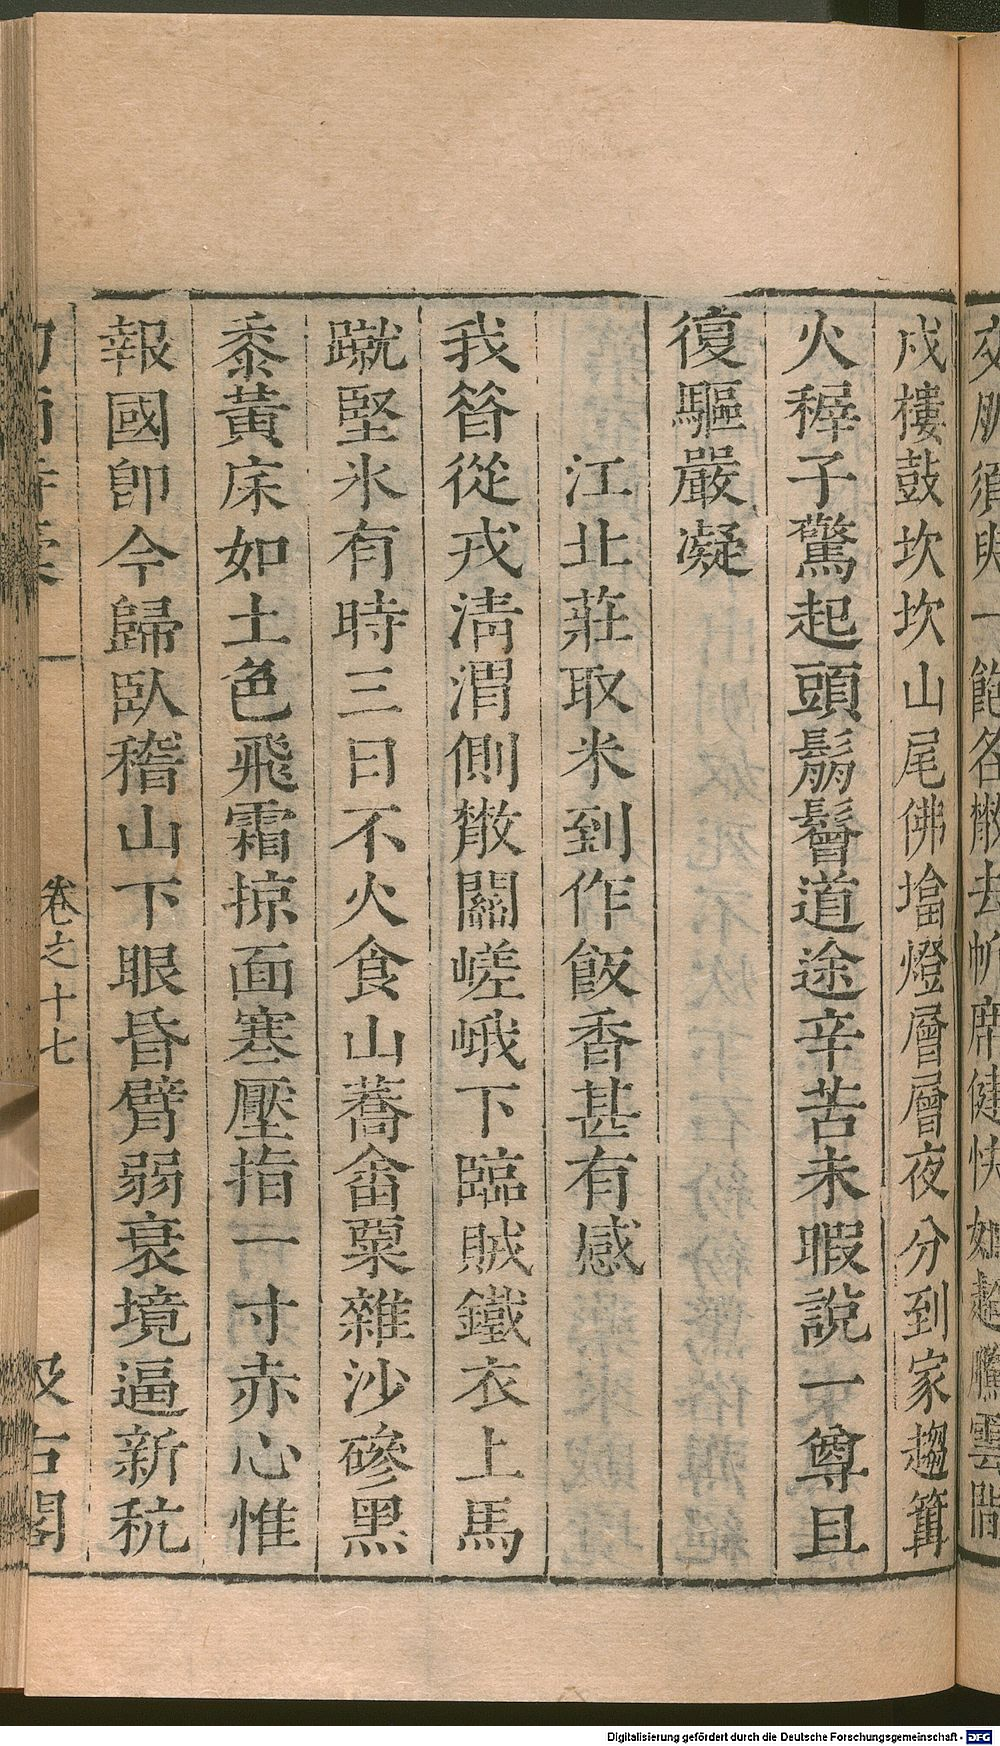 戍樓鼓坎坎山尾佛壋燈層層夜分到家趨篝
火稺子驚起頭鬅鬙道途辛苦未暇說一尊且
復驅嚴凝
江北莊取米到作飯香甚有感
我昝從戎淸渭側散關嵯峨下臨賊鐵衣上馬
蹴堅氷有時三日不火食山蕎畬粟雜沙磣黑
黍黃床如土色飛霜掠面寒壓指一寸赤心惟
報國卽今歸臥稽山下眼昏臂弱衰境逼新秔
卷之十七
汲古閣
Digitalisierung gefördert durch die Deutsche Forschungsgemeinschaft - DFG